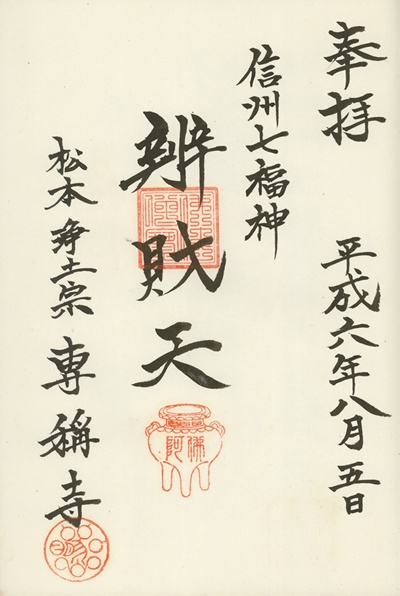 奉拝
平成六年八月五日
信州七福神
辨財天
松本 浄土宗 専稱寺